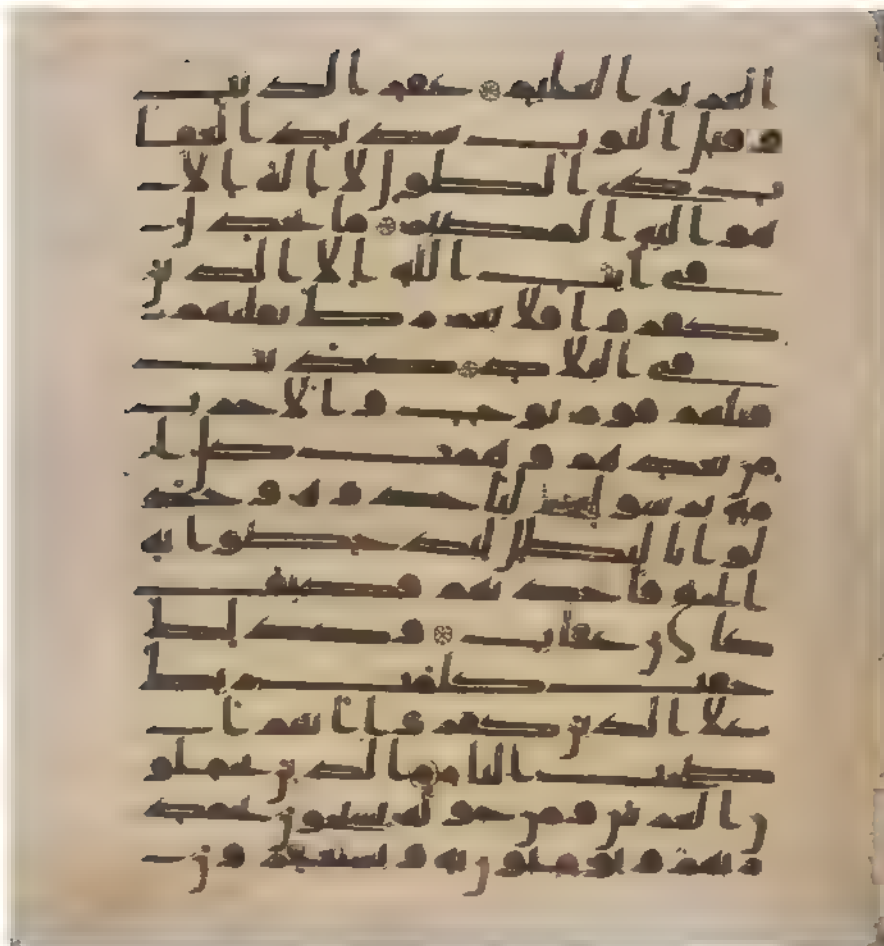 العزيز العليم غفر الذنب
وقبل التوب شديد العقا
ب ذي الطول لا اله الا
هو اليه المصير ما يجدل
في ايت الله الا الذين
كفروا فلا يغررك تقلبهم
في البلد كذبت
قبلهم قوم نوح والاحزب
من بعدهم وهمت كل ا
مه برسولهم لياخذوه وجد
لوا بالبطل ليدحضوا به
الحق فاخذتهم فكيف
كان عقاب وكذلك
حقت كلمت ربك
علي الذين كفروا انهم ا
صحب النار الذين يحملو
ن العرش ومن حوله يسبحون بحمد
ربهم ويومنون به ويستغفرون